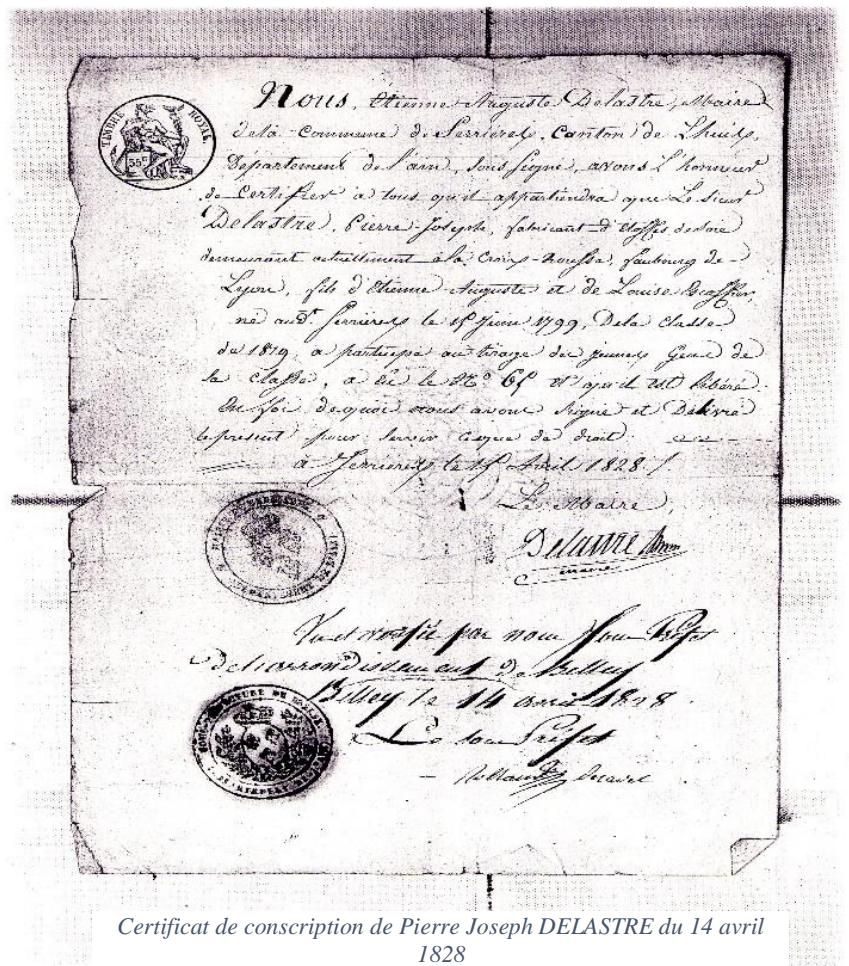 TIMBRE ROYAL
35 c
Nous, Etienne Auguste Delastre, Maire
de la Commune de Serrieres, Canton de Lhuis,
Département de l'ain, sous signé, avons l'honneur
de Certifier à tous qu'il appartiendra que Le sieur
Delastre, Pierre Joseph, fabricant d'étoffes de soie
demeurant actuellement à la Croix-Rousse, faubourg de
Lyon, fils d'Etienne Auguste et de Louise
né aud. Serrieres le Juin 1799, De la Classe
de 1819, a participé au tirage des jeunes Gens de
la Classe, a eu le N.o et qu'il est libéré.
En foi de quoi nous avons signé et Délivré
le présent pour servir à que de droit.
à Serrieres le Avril 1828.
Le Maire,
Delastre
maire
Vu et par nous Sous Préfet
de l'arrondissement de Belley
Belley le 14 avril 1828
Le sous Préfet
Certificat de conscription de Pierre Joseph DELASTRE du 14 avril
1828